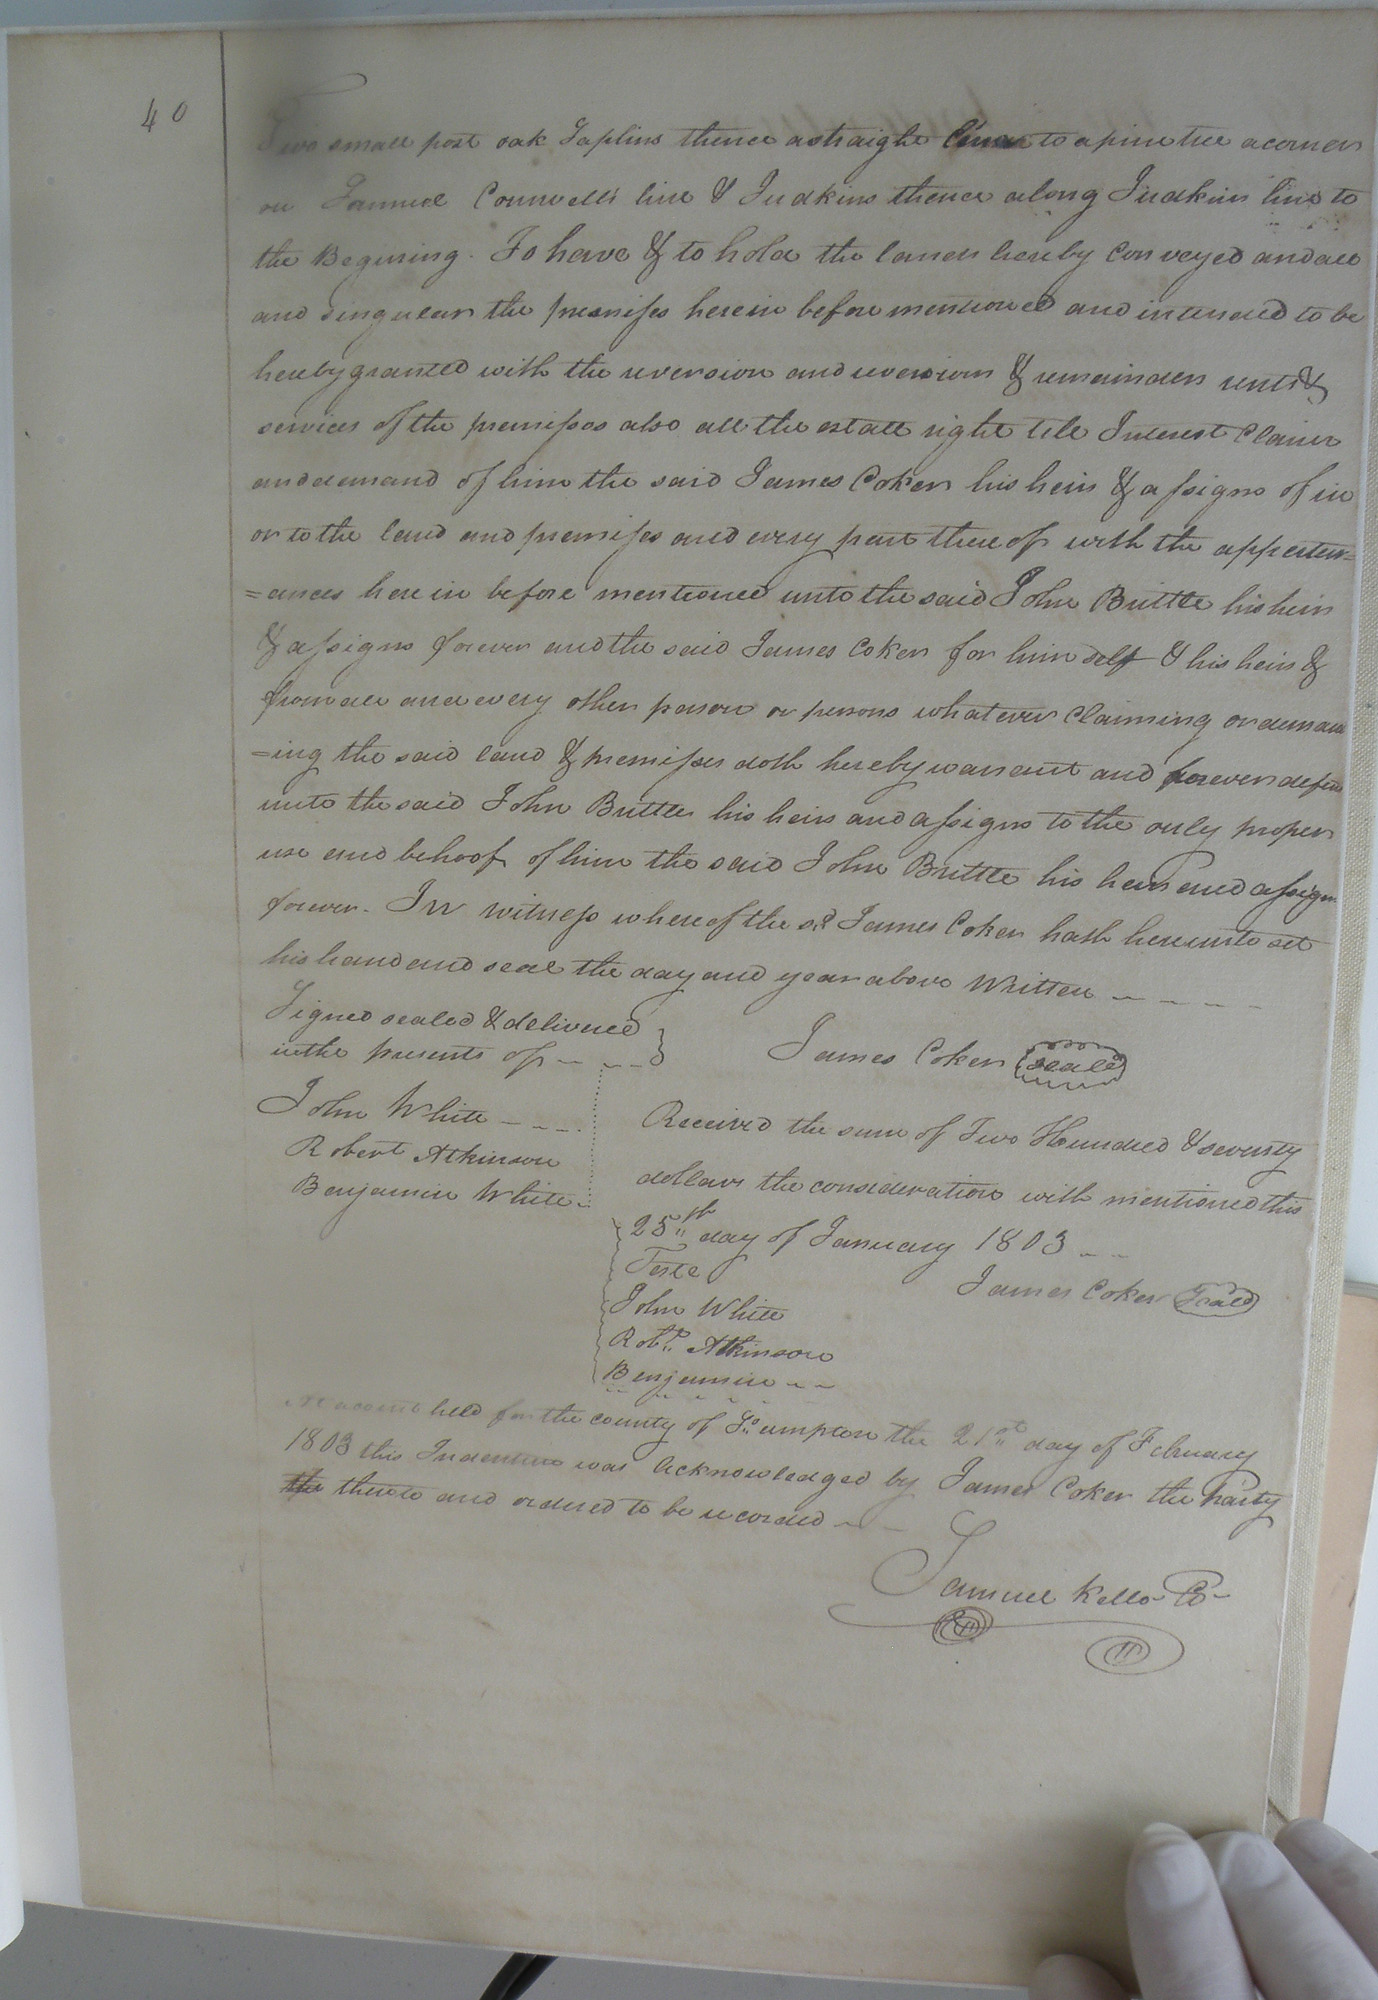 40
Two small post oak Saplins thence a straight line to a pine tree a corner
on Samuel Cornwells line & Judkins thence along Judkins line to
the Begining. To have & to hold the lands hereby Conveyed and all
and singular the premises herein before mentioned and intended to be
hereby granted with the reversion and reversions & remainders rents &
services of the premisses also all the estate right title Interest Claim
and demand of him the said James Coker his heirs & assigns of in
or to the land and premises and every part there of with the appertun=
=ances here in before mentioned unto the said John Brittle his heirs
& assigns forever and the said James Coker for him self & his heirs &
from all and every other person or persons whatever Claiming or deman
=ing the said land & premisses doth hereby warrant and forever defend
unto the said John Brittle his heirs and assigns to the only proper
use and behoof of him the said John Brittle his heirs and assigns
forever. In witness where of the sd. James Coker hath hereunto set
his hand and seal the day and year above Written
Signed sealed & delivered
in the presents of
James Coker seald
John White
Robert Atkinson
Benjamin White
Received the sum of Two Hundred & seventy
dollars the consideration with mentioned this
25th day of January 1803
Teste
James Coker Seald
John White
Robt. Atkinson
Benjamin
At a court held for the county of So.umpton the 21st day of February
1803 this Indenture was Acknowledged by James Coker the party
the thereto and ordered to be recorded
Samuel Kello Co